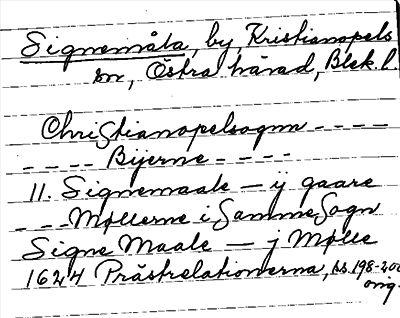 Signemåla, by, Kristianopels
sn, Östra härad, Blek. l
Christianopelsognn - - - -
- - - - Byerne - - - -
11. Signemaale — ij gaare
- - - Møllerne i Samme Sogn
Signe Maale — j Mølle
1624 Prästrelationerna, bs. 198-200
orig.